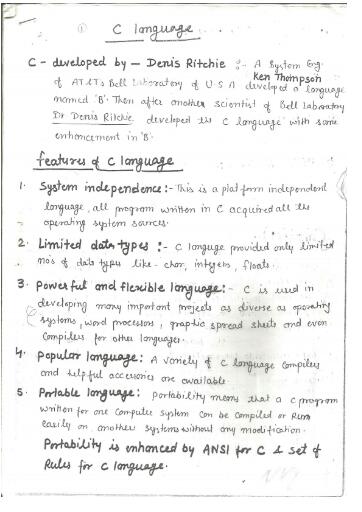 ① C language
C - developed by - Denis Ritchie :- A System Eng.
Ken Thompson
of AT&T's Bell Laboratory of U S A developed a language
named 'B'. Then after another scientist of Bell Laboratory
Dr Denis Ritchie developed the C language with some
enhancement in 'B'.
features of C language
1. System independence:- This is a plat form independent
language, all program written in C acquired all the
operating system sources.
2. Limited data types :- C languge provided only limited
no's of data types like - char, integers, floats.
3. Powerful and flexible language:- C is used in
developing many important projects as diverse as operating
systems, word processors, graphic spread sheets and even
Compilers for other languages.
4. Popular language: A variety of C language Compilers
and helpful accessories are available.
5. Portable language: Portability means that a C program
written for one Computer system can be compiled or Run
easily on another systems without any modification.
Portability is enhanced by ANSI for C & set of
Rules for C language.